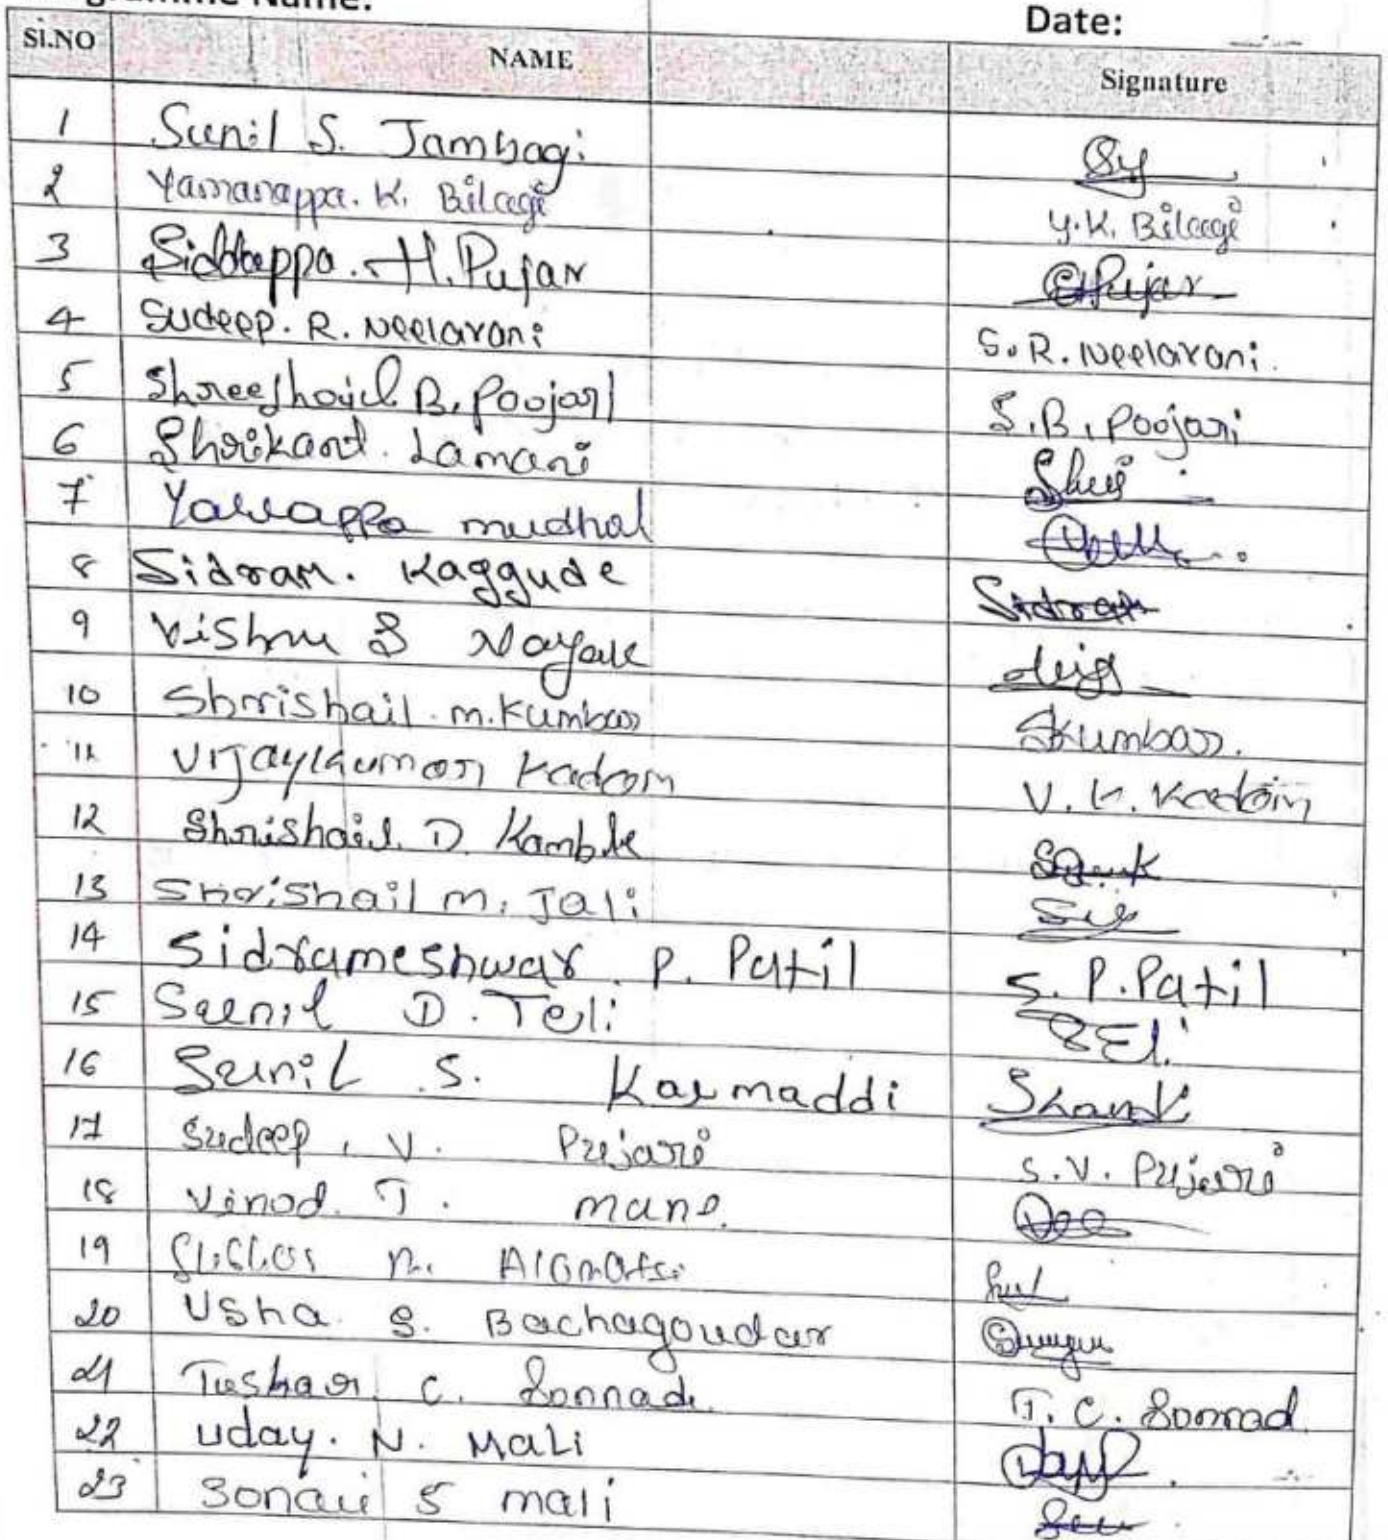 Date:
Sl.NO NAME Signature
1 Sunil S. Jambagi
2 Yamanappa. K. Bilagi Y.K. Bilagi
3 Siddappa. H. Pujar Pujar
4 Sudeep. R. Neelavani S. R. Neelavani.
5 Shreeshail B. Poojari S. B. Poojari
6 Shrikant. Lamani Shri
7 Yallappa mudhol
8 Sidram. Kaggude Sidram
9 Vishnu S Nayak
10 Shrishail. m. Kumbar SKumbar.
11 Vijaykumar Kadam V. K. Kadam
12 Shrishail. D. Kamble
13 Shrishail m. Jali
14 Sidrameshwar. P. Patil S. P. Patil
15 Sunil D. Teli
16 Sunil S. Karmaddi
17 Sudeep. V. Pujari S. V. Pujari
18 Vinod. T. mane.
19
20 Usha. S. Bachagoudar
21 Tushar. C. Sonnad. T. C. Sonnad.
22 Uday. N. Mali
23 S mali